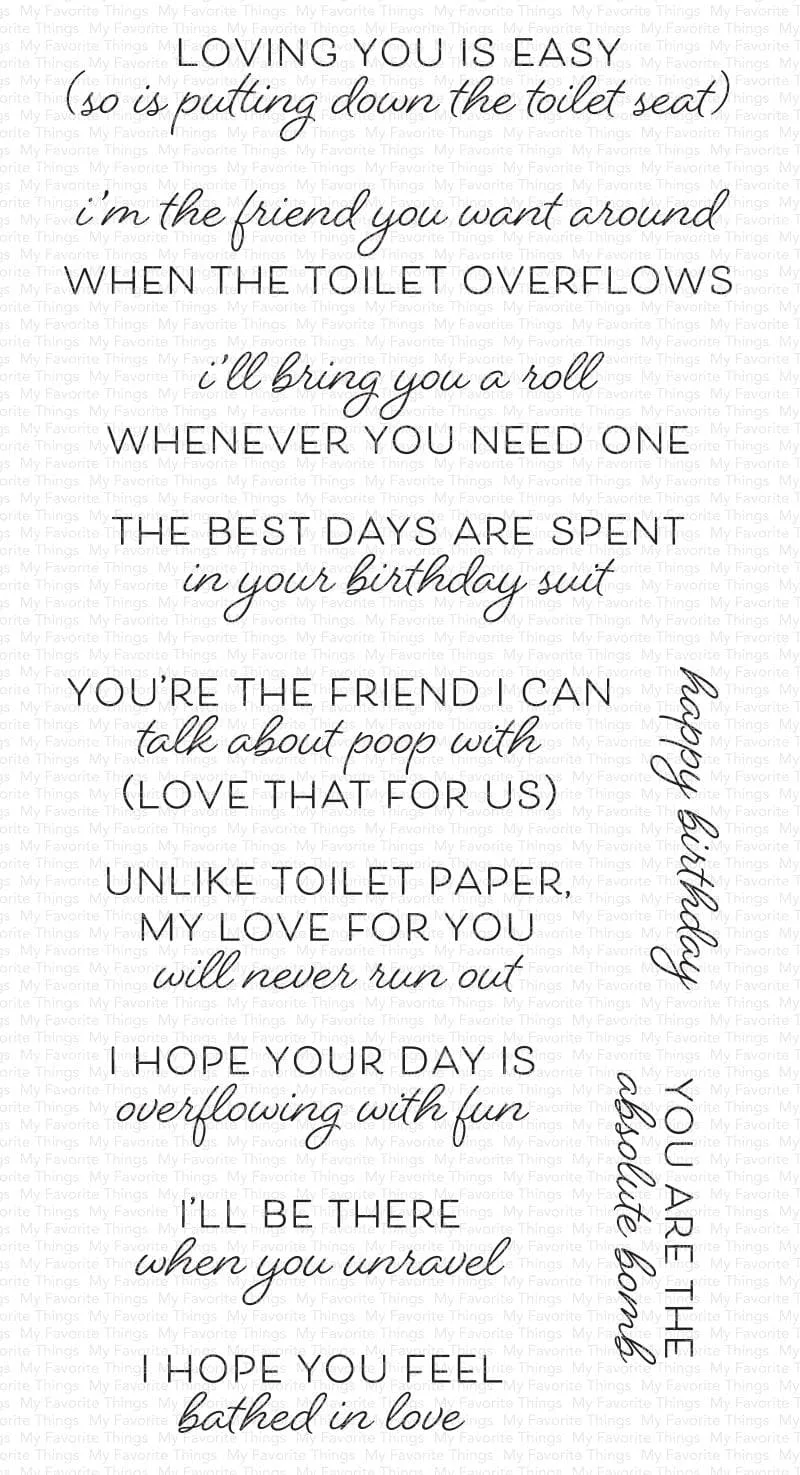 LOVING YOU IS EASY
(so is putting down the toilet seat)
i'm the friend you want around
WHEN THE TOILET OVERFLOWS
i'll bring you a roll
WHENEVER YOU NEED ONE
THE BEST DAYS ARE SPENT
in your birthday suit
YOU'RE THE FRIEND I CAN
talk about poop with
(LOVE THAT FOR US)
UNLIKE TOILET PAPER,
MY LOVE FOR YOU
will never run out
I HOPE YOUR DAY IS
overflowing with fun
I'LL BE THERE
when you unravel
I HOPE YOU FEEL
bathed in love
happy birthday
YOU ARE THE
absolute bomb
My Favorite Things